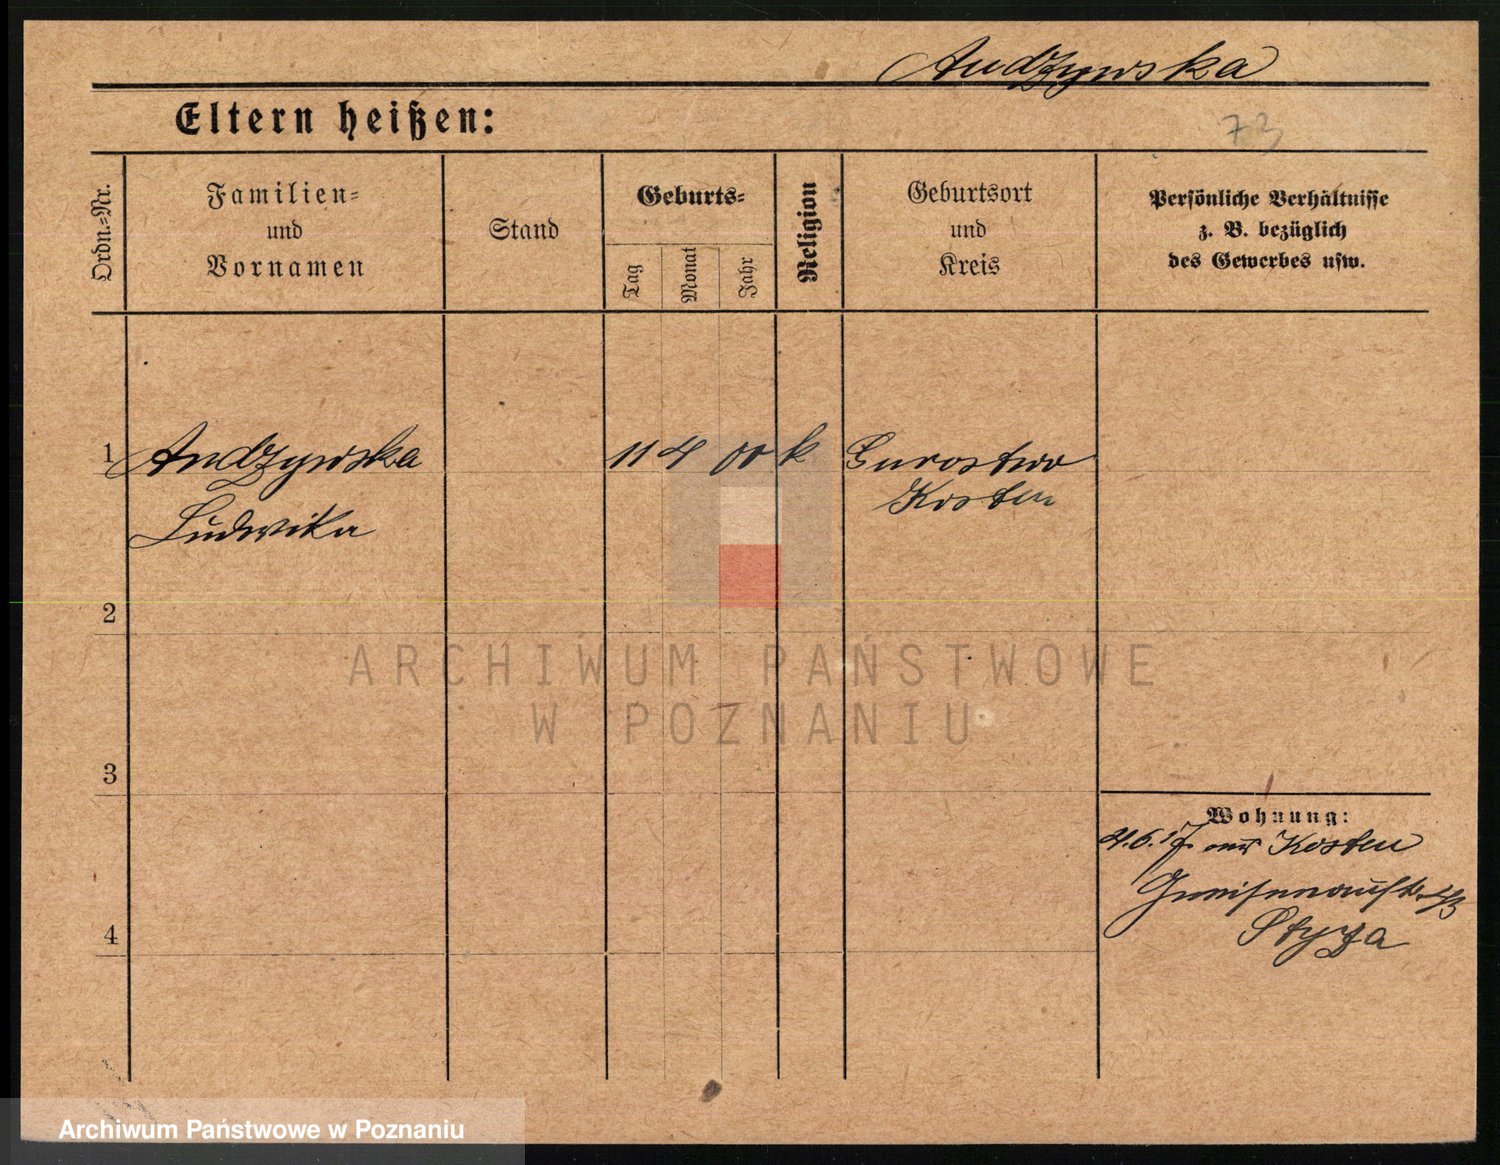 Andzywska
Eltern heißen:
73
Ordn.-Nr.
Familien-
und
Vornamen
Stand
Geburts-
Tag
Monat
Jahr
Religion
Geburtsort
und
Kreis
Persönliche Verhältnisse
z. B. bezüglich
des Gewerbes usw.
1 Andzywska 11 4 00 k Gurostwo
Kosten
Ludwika
2
ARCHIWUM PAŃSTWOWE
W POZNANIU
3
Wohnung:
4.6.17 aus Kosten
Gneisenaustr.
4
Archiwum Państwowe w Poznaniu